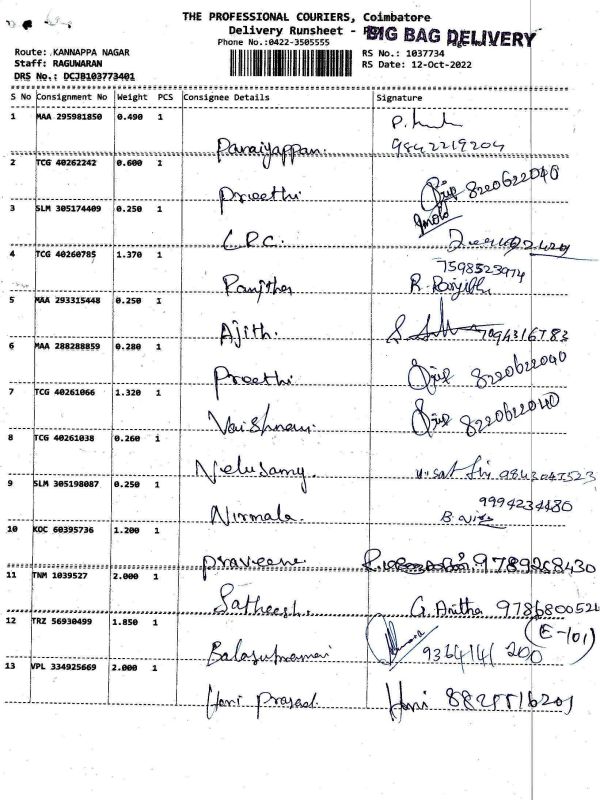 THE PROFESSIONAL COURIERS, Coimbatore
Delivery Runsheet -
BIG BAG DELIVERY
Phone No.:0422-3505555
Route: KANNAPPA NAGAR
Staff: RAGUWARAN
DRS No.: DCJB103773401
RS No.: 1037734
RS Date: 12-Oct-2022
S No Consignment No Weight PCS Consignee Details Signature
1 MAA 295981850 0.490 1
Paraiyappan. 9842219204
2 TCG 40262242 0.600 1
Preethi 8220622040
3 SLM 305174409 0.250 1
C.P.C.
4 TCG 40260785 1.370 1
7598523974
Ranjitha R. Ranjith
5 MAA 293315448 0.250 1
Ajith. 7094316783
6 MAA 288288859 0.280 1
Preethi 8220622040
7 TCG 40261066 1.320 1
Vaishnavi 8220622040
8 TCG 40261038 0.260 1
Velusamy 9843047523
9 SLM 305198087 0.250 1
9994234480
Nirmala
10 KOC 60395736 1.200 1
Praveene 9789268430
11 TNM 1039527 2.000 1
Satheesh. G. Anitha 9786800521
12 TRZ 56930499 1.850 1
(E-101)
Balasubramani 9364141 200
13 VPL 334925669 2.000 1
Hari Prasad. Hari